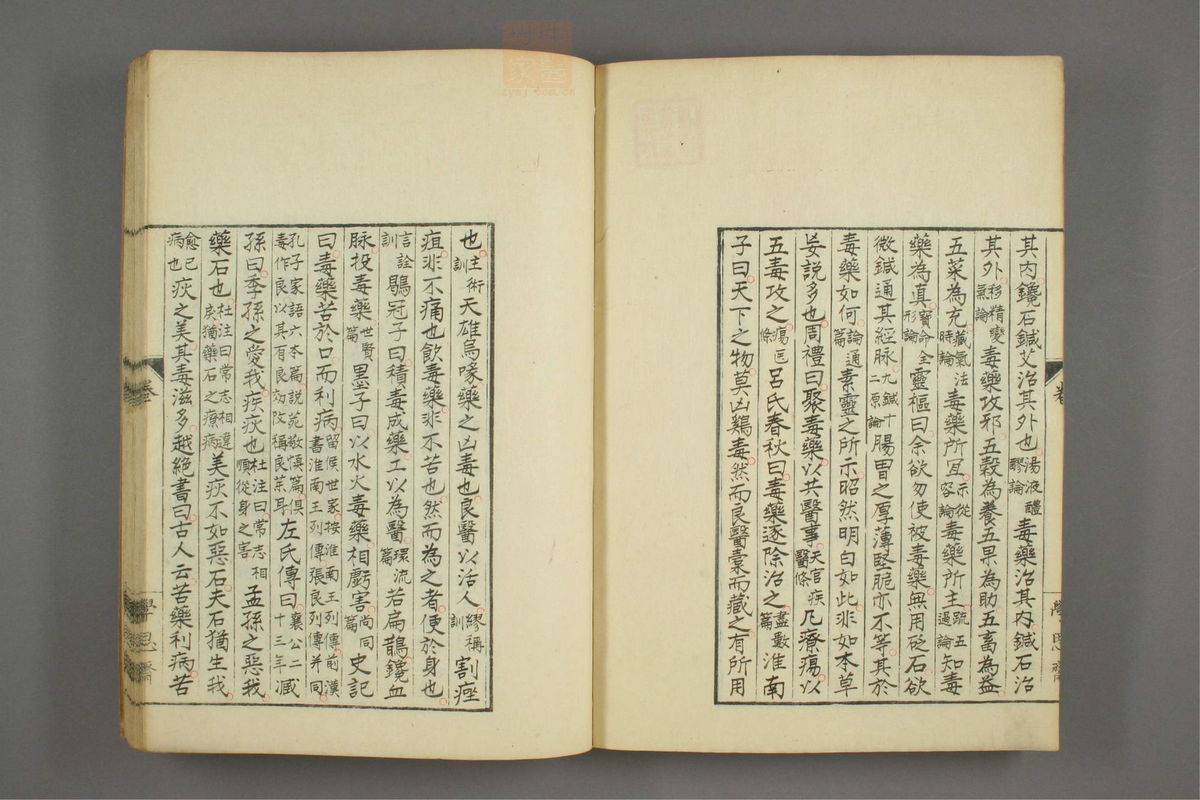 其内鑱石鍼艾治其外也湯液醪醴論毒藥治其内鍼石治
其外移精變氣論毒藥攻邪五穀為養五果為助五畜為益
五菜為充藏氣法時論毒藥所宜示從容論毒藥所主疏五過論知毒
藥為真寶命全形論靈樞曰余欲勿使被毒藥無用砭石欲
微鍼通其經脉九鍼十二原論腸胃之厚薄堅脆亦不等其於
毒藥如何論通篇素靈之所示昭然明白如此非如本草
妄説多也周禮曰聚毒藥以共醫事天官疾醫條凡療瘍以
五毒攻之瘍醫條呂氏春秋曰毒藥逐除治之盡數篇淮南
子曰天下之物莫凶雞毒然而良醫橐而藏之有所用
也主術訓天雄烏喙藥之凶毒也良醫以活人繆稱訓割痤
疽非不痛也飲毒藥非不苦也然而為之者便於身也
詮言訓鶡冠子曰積毒成藥工以為醫環流篇若扁鵲鑱血
脉投毒藥世賢篇墨子曰以水火毒藥相虧害尚同篇史記
曰毒藥苦於口而利病留侯世家按淮南王列傳前漢書淮南王列傳張良列傳并同
孔子家語六本篇説苑敬慎篇俱毒作良以其有良効改稱良茶耳左氏傳曰襄公二十三年臧
孫曰季孫之愛我疾疢也杜注曰常志相順從身之害孟孫之惡我
藥石也杜注曰常志相違戾猶藥石之療病美疢不如惡石夫石猶生我
愈己病也疢之美其毒滋多越絶書曰古人云苦藥利病苦
學思齋